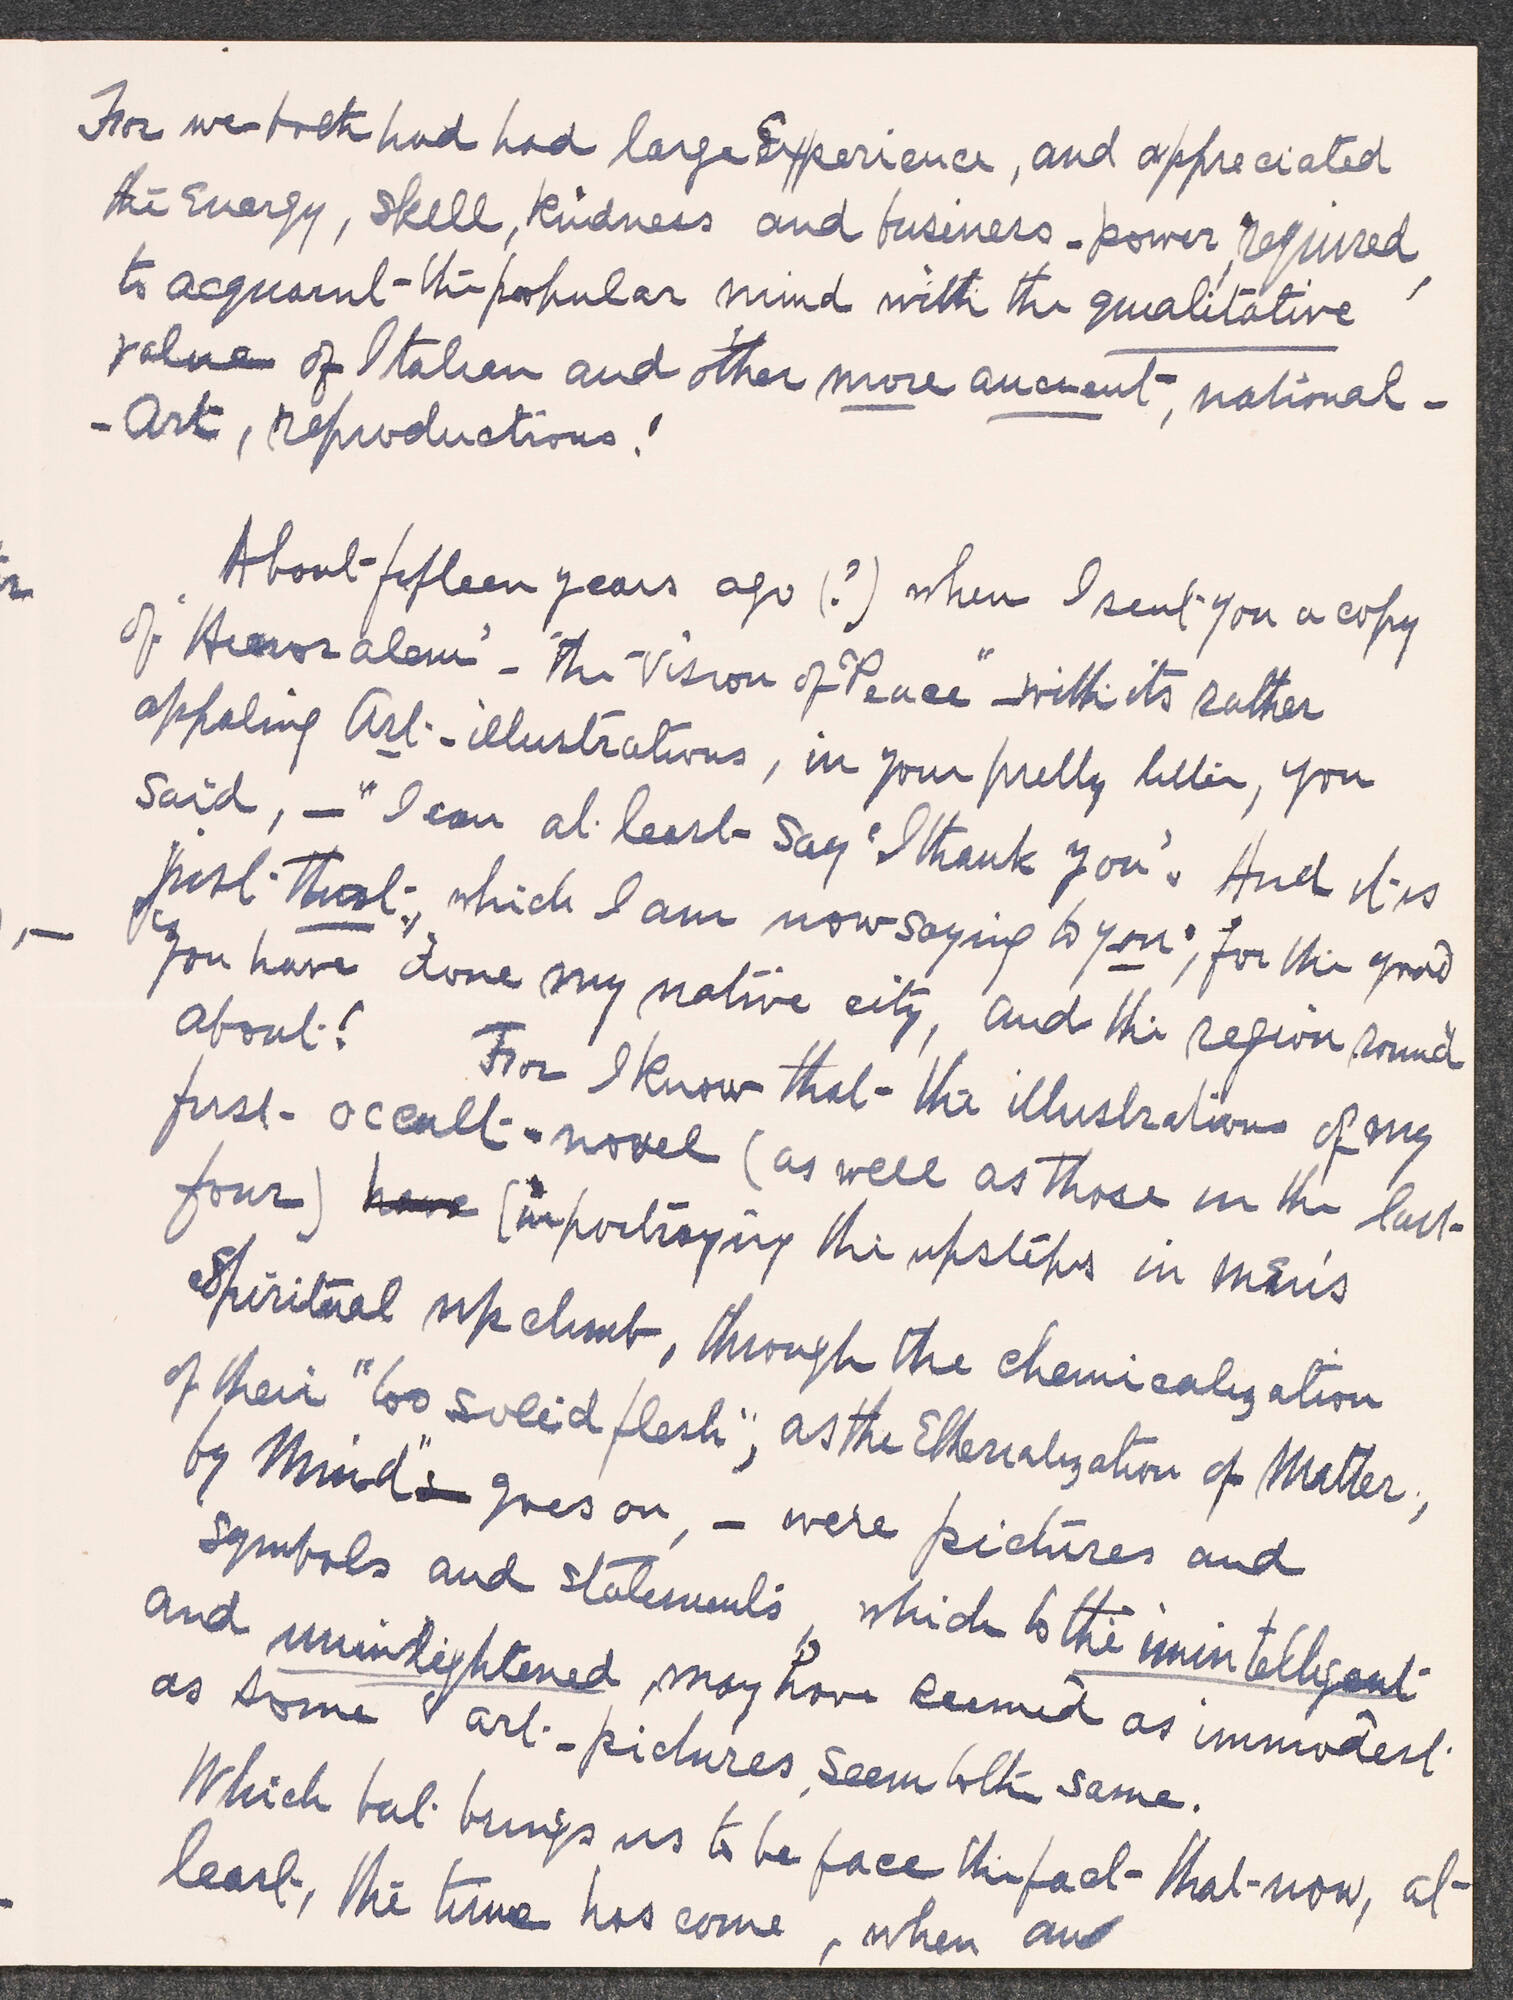 For we both had had large Experience, and appreciated
the Energy, skill, kindness and business-power, required,
to acquaint the popular mind with the qualitative
value of Italian and other more ancient, national-
-Art, reproductions!
About fifteen years ago (?) when I sent you a copy
of "Hieorsalem' - The Vision of Peace" - with its rather
appaling Art-illustrations, in your pretty letter, you
said, — "I can at least say 'I thank you'. And it is
just that, which I am now saying to you', for the good
you have done my native city, and the region round
about! For I know that the illustrations of my
first occult-novel (as well as those in the last
four) have (in portraying the upsteps in men's
Spiritual up climb, through the chemicalization
of their "too solid flesh", as the Etherialization of Matter,
by Mind" goes on, — were pictures and
symbols and statements, which to the unintelligent
and uninlightened, may have seemed as immodest
as some art-pictures, seem to the same.
Which but brings us to be face the fact that now, at
least, the time has come, when an